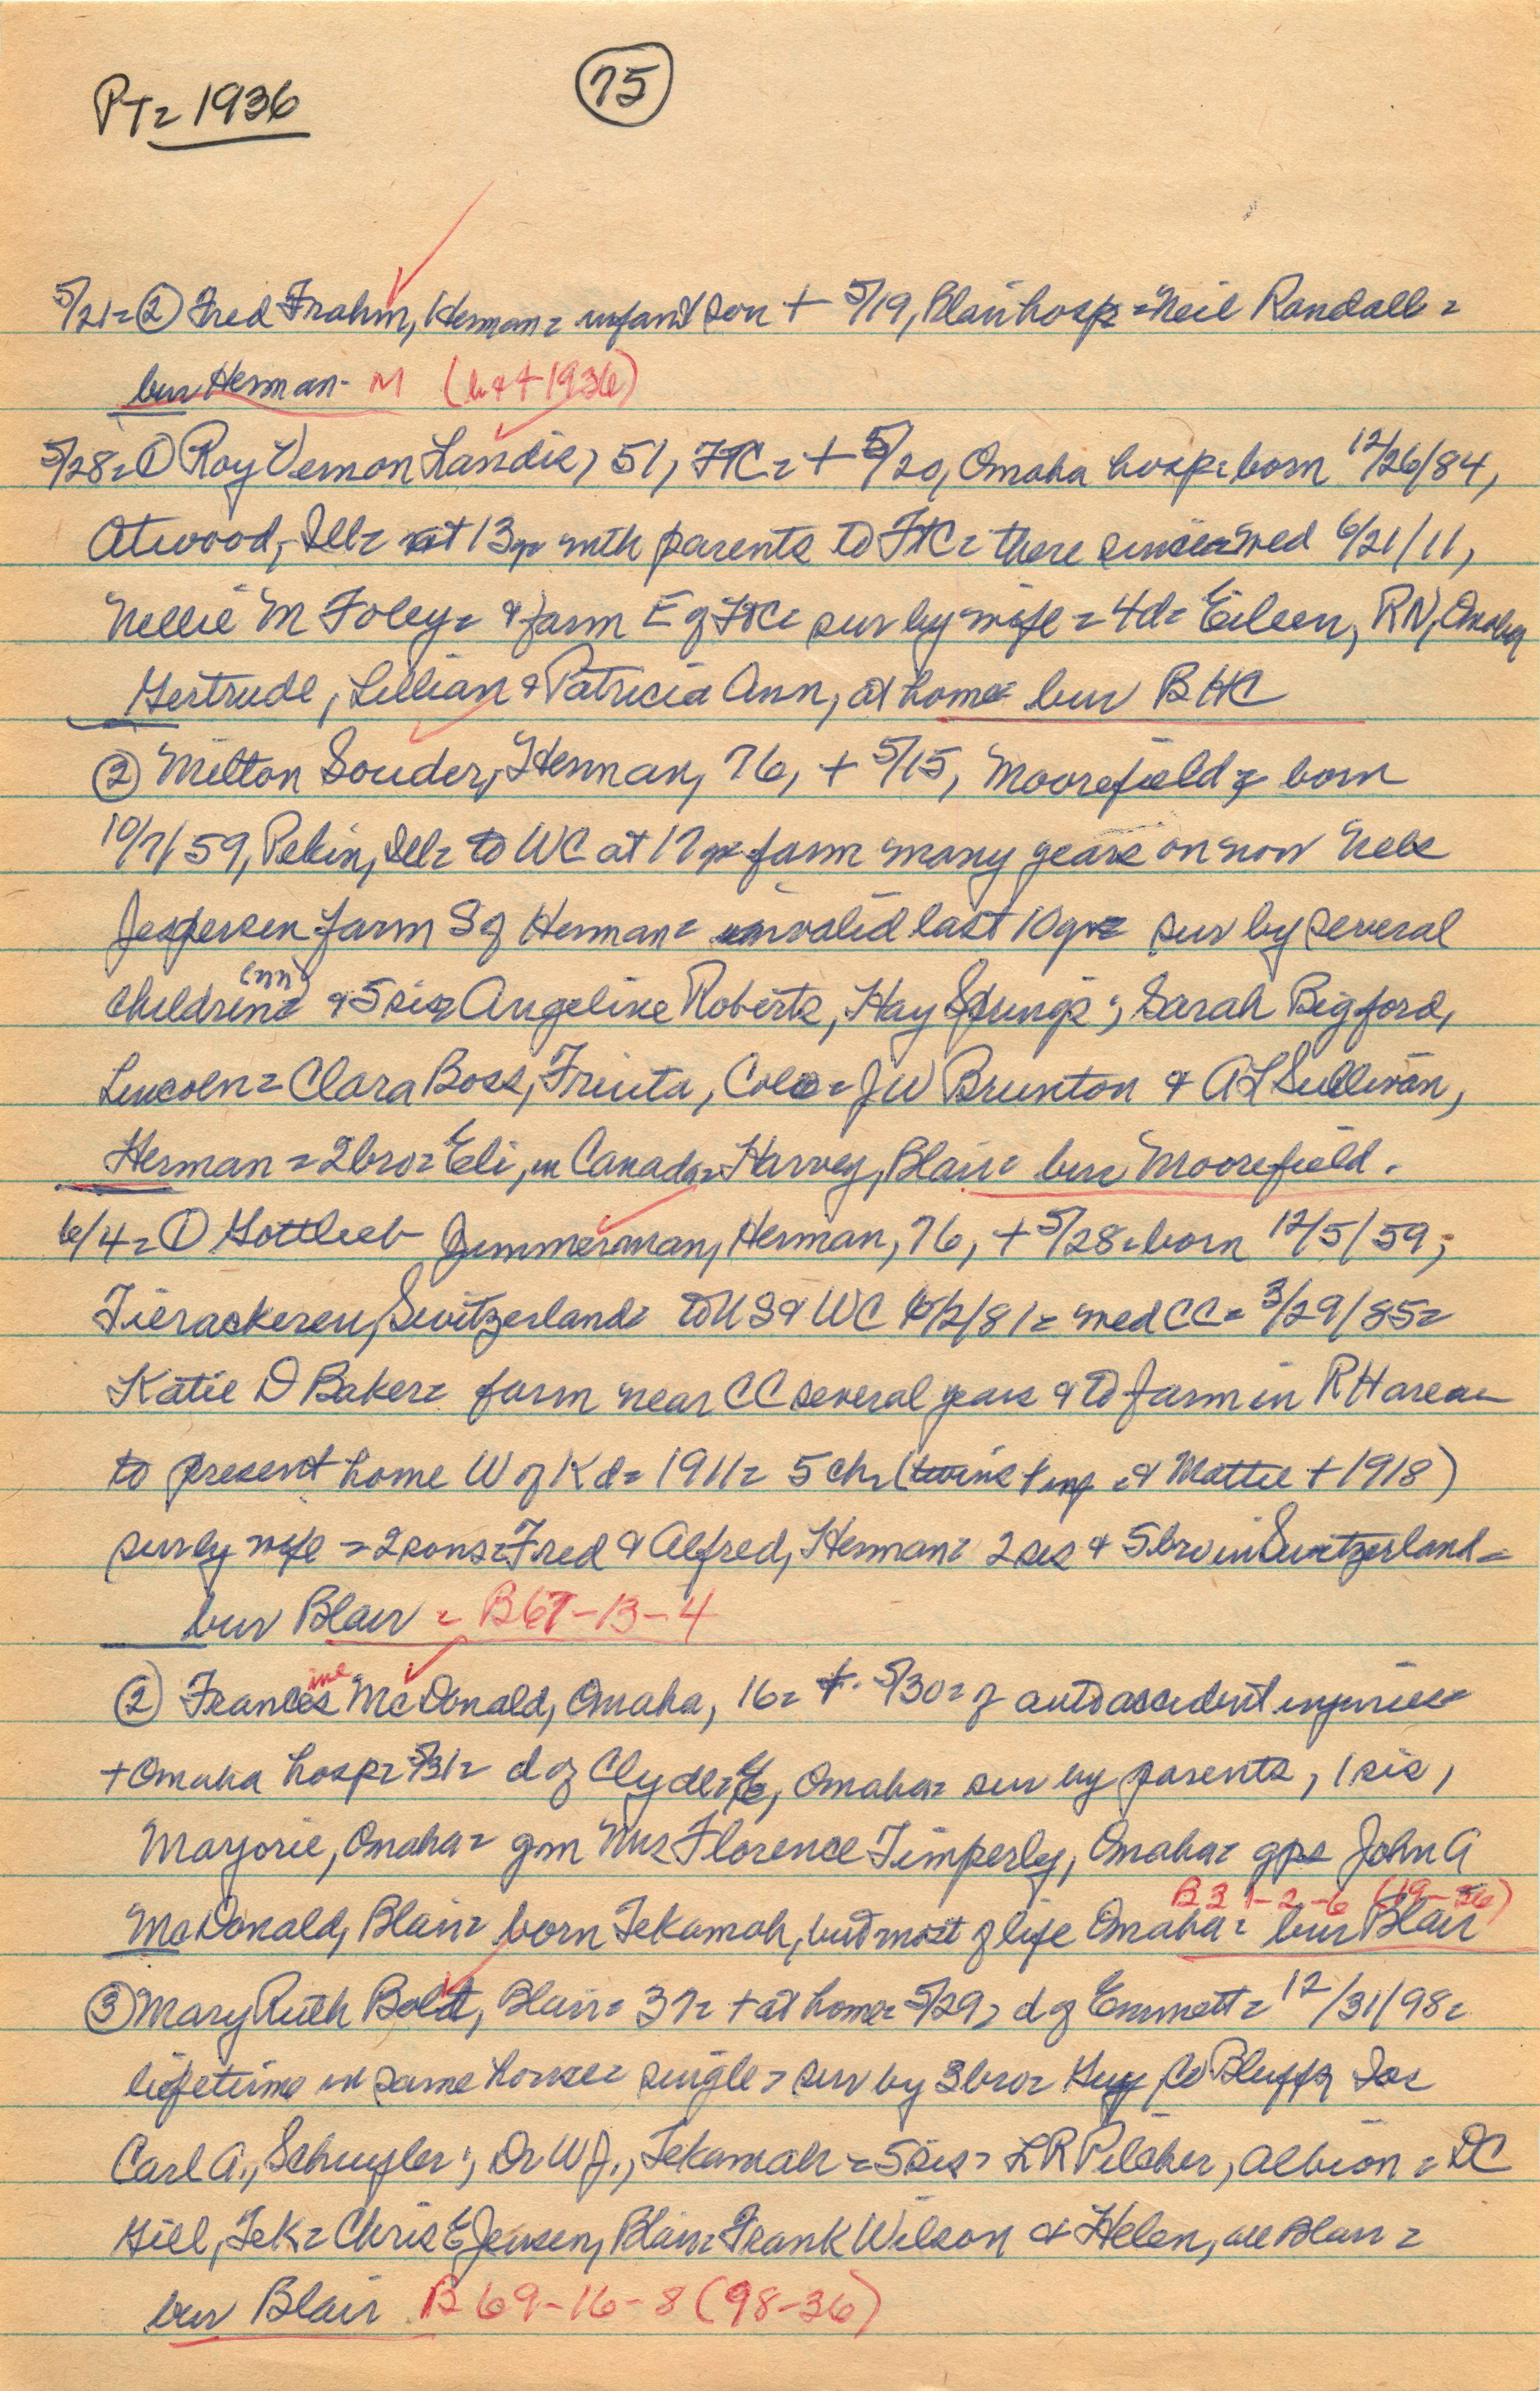 PT= 1936
75
5/21= ② Fred Frahm, Herman= infant son + 5/19, Blair hosp= Neil Randall=
bur Herman- M (b & + 1936)
5/28= ① Roy Vernon Landis, 51, FtC= + 5/20, Omaha hosp= born 12/26/84,
Atwood, Ill= at 13yr with parents to FtC= there since= wed 6/21/11,
Nellie M Foley= & farm E of FtC= sur by wife = 4d= Eileen, RN, Omaha
Gertrude, Lillian & Patricia Ann, at home= bur BHC
② Milton Souder, Herman, 76, + 5/15, Moorefield= born
10/7/59, Pekin, Ill= to WC at 17yr= farm many years on now Nels
Jespersen farm S of Herman= invalid last 10yr= sur by several
children= (nn) & 5 sis= Angeline Roberts, Hay Springs; Sarah Bigford,
Lincoln= Clara Boss, Fruita, Colo= JW Brunton & AL Sullivan,
Herman = 2bro= Eli, in Canada= Harvey, Blair= bur Moorefield.
6/4= ① Gottlieb Zimmerman, Herman, 76, + 5/28= born 12/5/59;
Tierackeren, Switzerland= to US & WC 6/2/81= wed CC= 3/29/85=
Katie D Baker= farm near CC several years & to farm in RH area=
to present home W of Kd= 1911= 5 ch= (twins + inf = & Mattie + 1918)
sur by wife = 2 sons= Fred & Alfred, Herman= 2 sis & 5 bro in Switzerland=
bur Blair = B67-13-4
② Frances ine McDonald, Omaha, 16= +. 5/30= of auto accident injuries=
+ Omaha hosp= 5/31= d of Clyde E, Omaha= sur by parents, 1 sis,
Marjorie, Omaha= gm Mrs Florence Timperly, Omaha= gps John A
B31-2-6 (19-36)
McDonald, Blair= born Tekamah, but most of life Omaha= bur Blair
③ Mary Ruth Bolt, Blair= 37= + at home= 5/29, d of Emmett= 12/31/98=
lifetime in same house= single= sur by 3bro= Guy, Co Bluffs
Carl A., Schuyler; Dr WJ., Tekamah = 5 sis= LR Pilcher, Albion = DC
Gill, Tek= Chris E Jensen, Blair= Frank Wilson & Helen, all Blair=
bur Blair B69-16-8 (98-36)